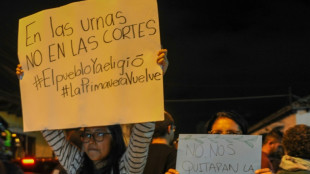 En las urnas
NO EN LAS CORTES
#ElpuebloYaeligió
#LaPrimaveraVuelve
NO, NOS
QUITARAN LA